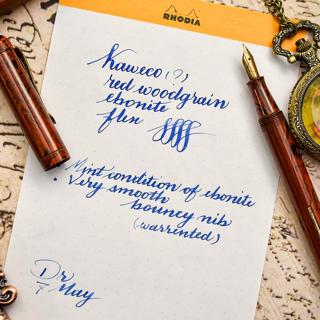 RHODIA
Kaweco (?)
red woodgrain
ebonite
flex
Mint condition of ebonite
• Very smooth
bouncy nib
(warrented)
Dr
7 May